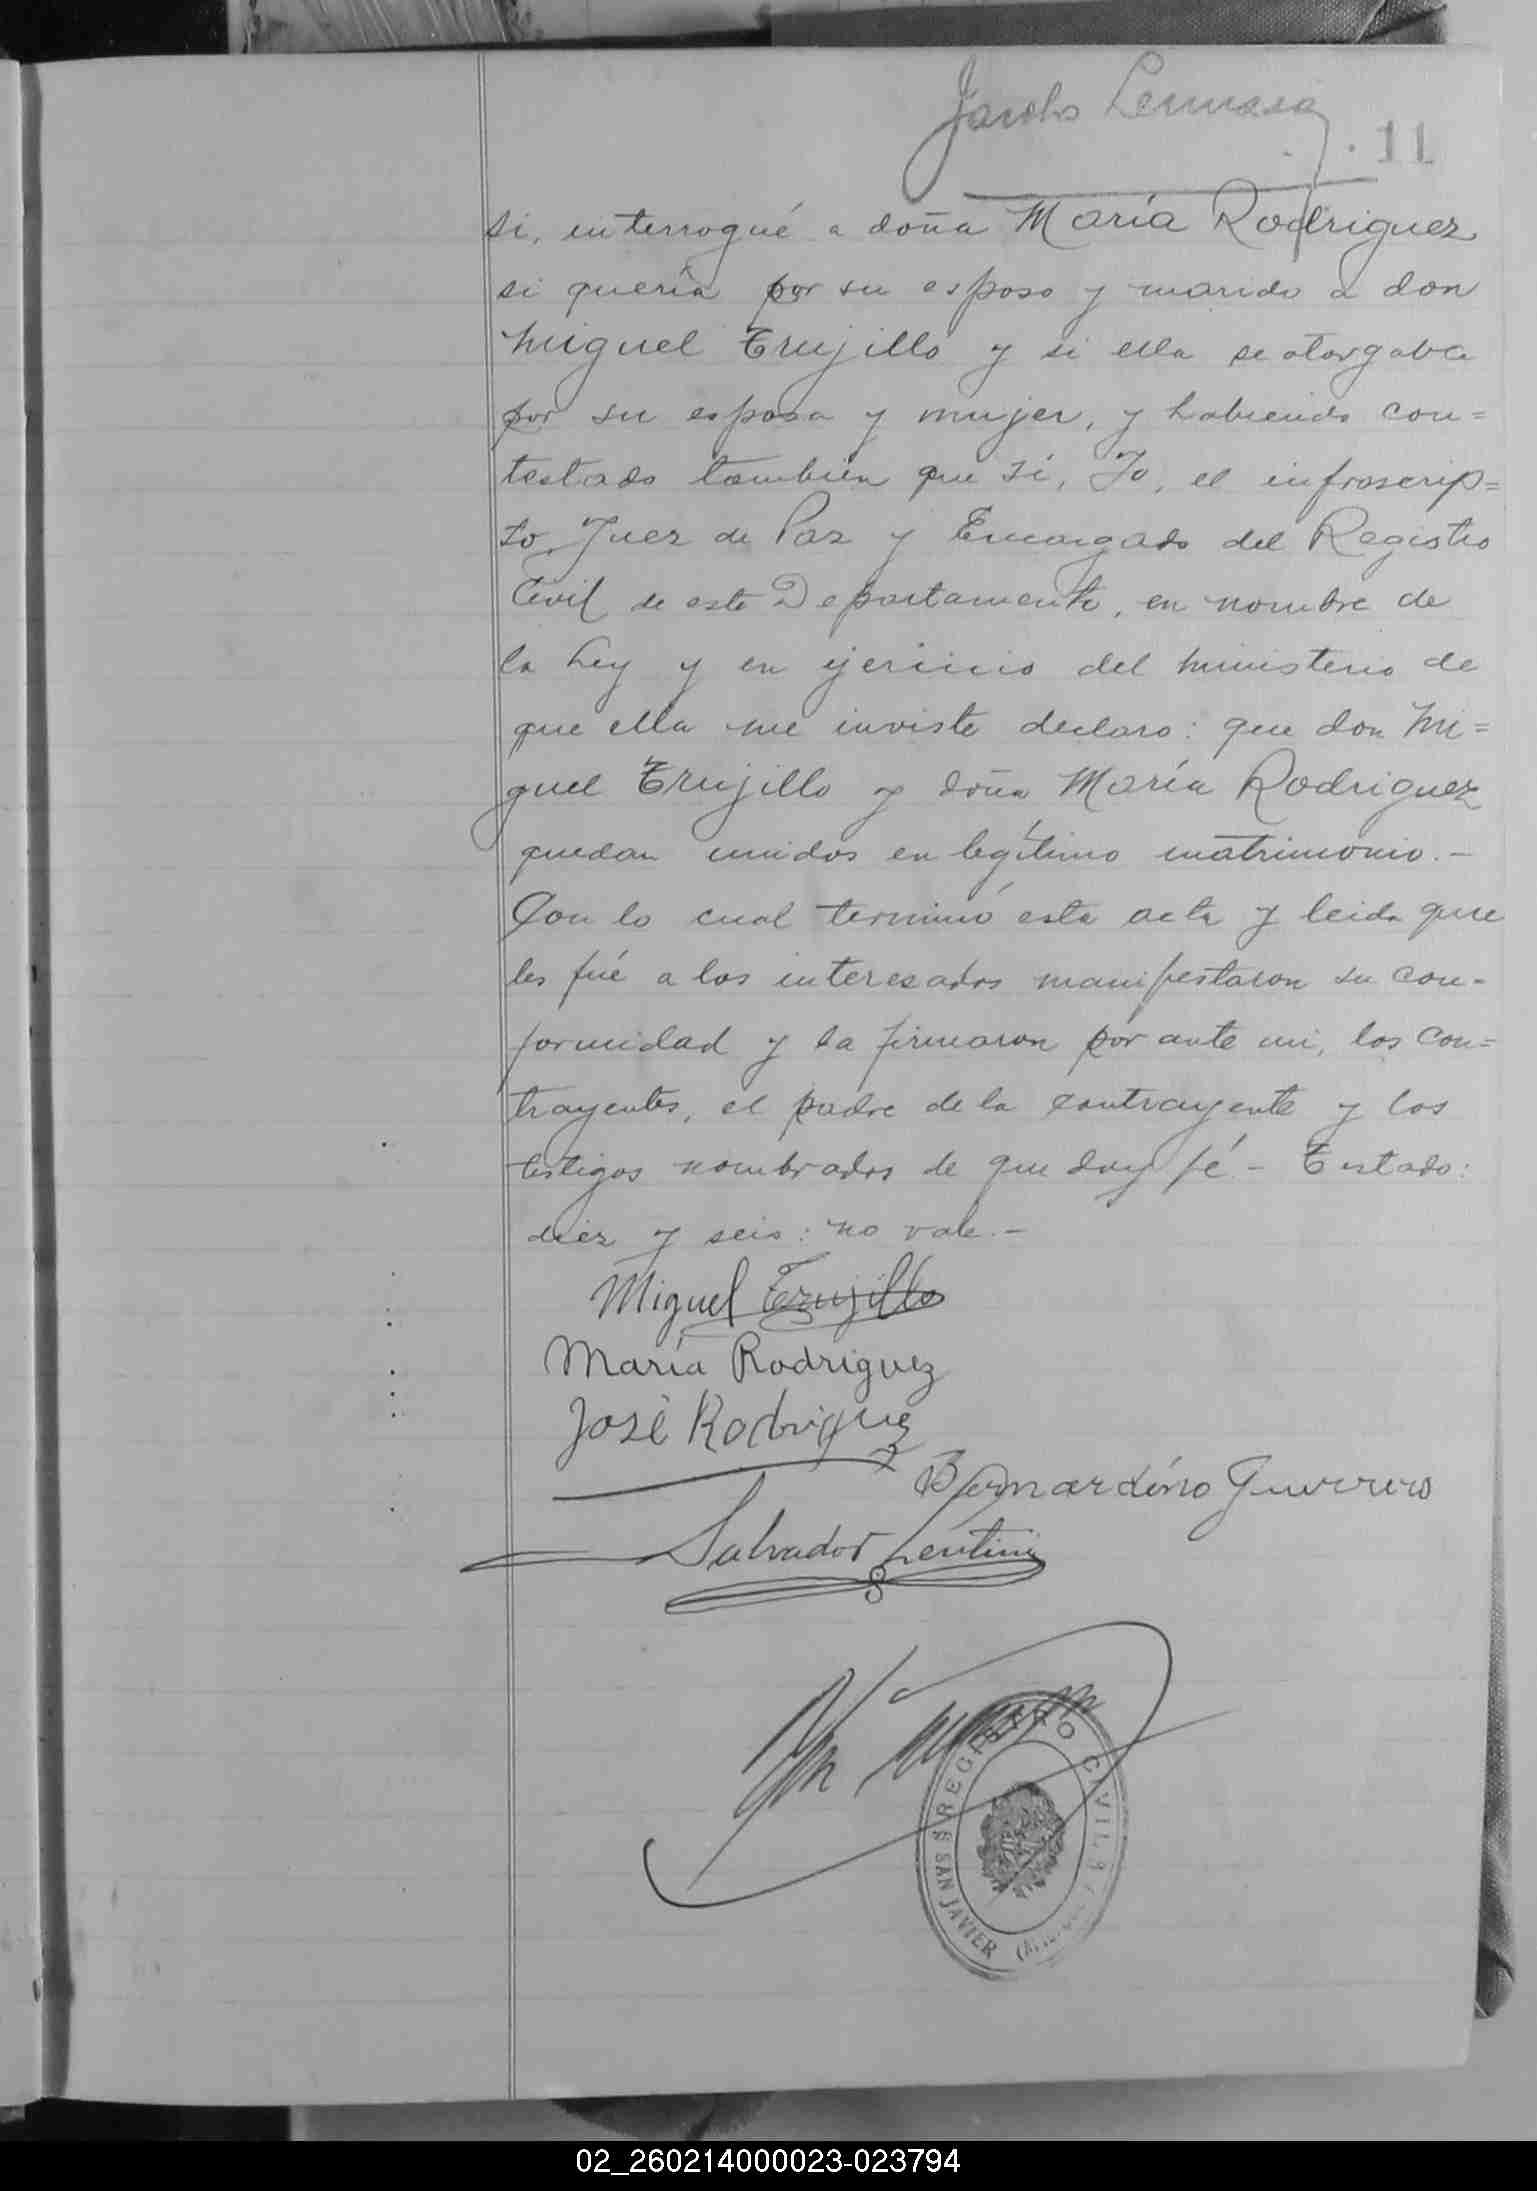 Jacobo
11
si, interrogué a doña María Rodriguez
si quería por su esposo y marido a don
Miguel Trujillo y si ella se otorgaba
por su esposa y mujer, y habiendo con=
testado también que sí, Yo, el infrascrip=
to, Juez de Paz y Encargado del Registro
Civil de este Departamento, en nombre de
la Ley y en ejercicio del ministerio de
que ella me inviste declaro: que don Mi=
guel Trujillo y doña María Rodriguez
quedan unidos en legítimo matrimonio.-
Con lo cual terminó esta acta y leida que
les fué a los interesados manifestaron su con-
formidad y la firmaron por ante mi, los con=
trayentes, el padre de la contrayente y los
testigos nombrados de que doy fé.- Testado:
diez y seis: no vale.-
Miguel Trujillo
María Rodriguez
José Rodriguez
Bernardino Guerrero
Salvador Lentini
REGISTRO CIVIL
SAN JAVIER
02_260214000023-023794